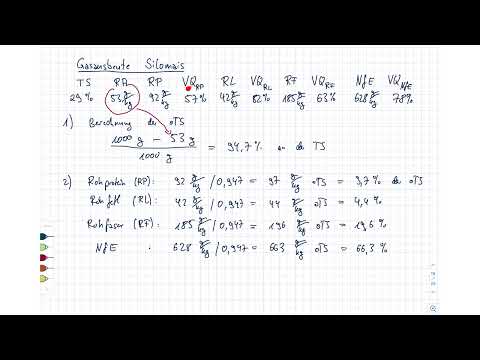 Gasausbeute Silomais
TS RA RP VQ_RP RL VQ_RL RF VQ_RF NfE VQ_NfE
29 % 53 g/kg 92 g/kg 57 % 42 g/kg 82 % 185 g/kg 63 % 628 g/kg 78 %
1) Berechnung der oTS
1000 g − 53 g / 1000 g = 94,7 % an der TS
2) Rohprotein (RP): 92 g/kg / 0,947 = 97 g/kg oTS = 9,7 % der oTS
Rohfett (RL): 42 g/kg / 0,947 = 44 g/kg oTS = 4,4 %
Rohfaser (RF): 185 g/kg / 0,947 = 196 g/kg oTS = 19,6 %
NfE : 628 g/kg / 0,947 = 663 g/kg oTS = 66,3 %